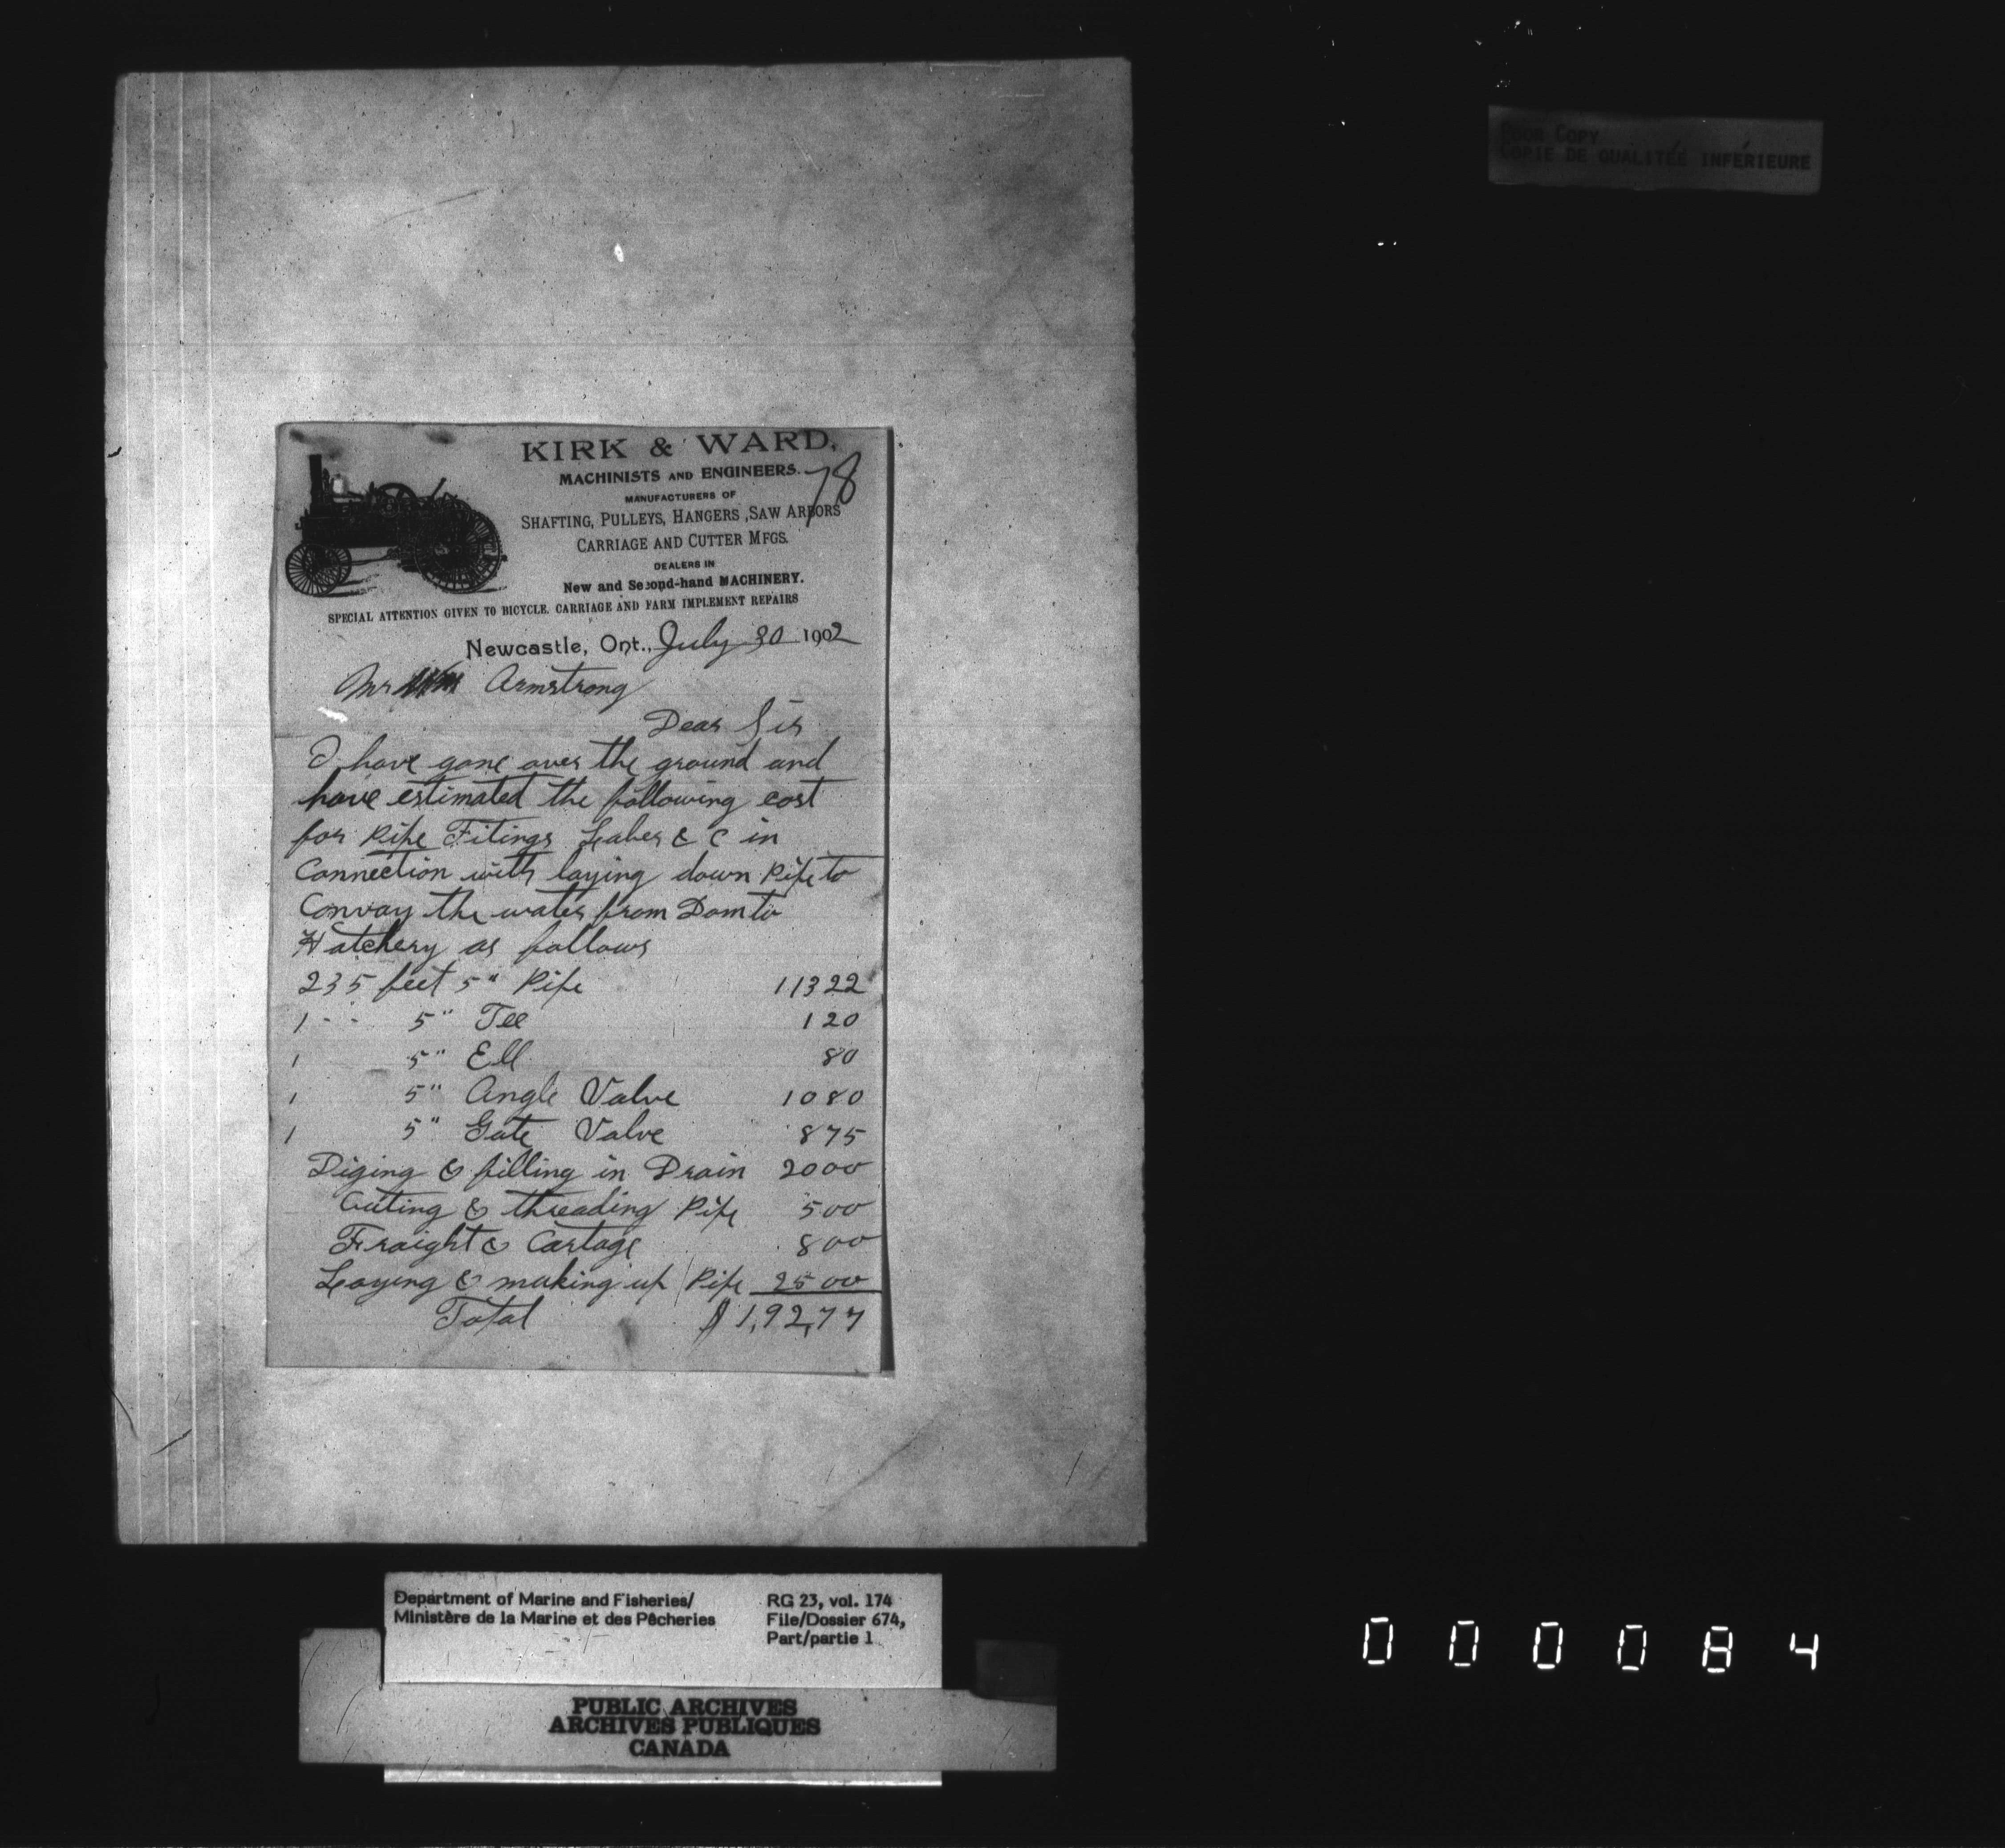 POOR COPY
COPIE DE QUALITÉE INFÉRIEURE
KIRK & WARD,
MACHINISTS AND ENGINEERS.
78
MANUFACTURERS OF
SHAFTING, PULLEYS, HANGERS, SAW ARBORS
CARRIAGE AND CUTTER MFGS.
DEALERS IN
New and Second-hand MACHINERY.
SPECIAL ATTENTION GIVEN TO BICYCLE. CARRIAGE AND FARM IMPLEMENT REPAIRS
Newcastle, Ont., July 30 1902
Mr Armstrong
Dear Sir
I have gone over the ground and
have estimated the following cost
for Pipe Fitings Laber & C in
Connection with laying down Pipe to
Convay the water from Dam to
Hatchery as follows
235 feet 5" Pipe 11322
1 " " 5" Tee 120
1 5" Ell 80
1 5" Angle Valve 1080
1 5" Gate Valve 875
Diging & filling in Drain 2000
Cuting & threading Pipe 500
Fraight & Cartage 800
Laying & making up Pipe 2500
Total $1,92,77
Department of Marine and Fisheries/
Ministère de la Marine et des Pêcheries
RG 23, vol. 174
File/Dossier 674,
Part/partie 1
PUBLIC ARCHIVES
ARCHIVES PUBLIQUES
CANADA
000084